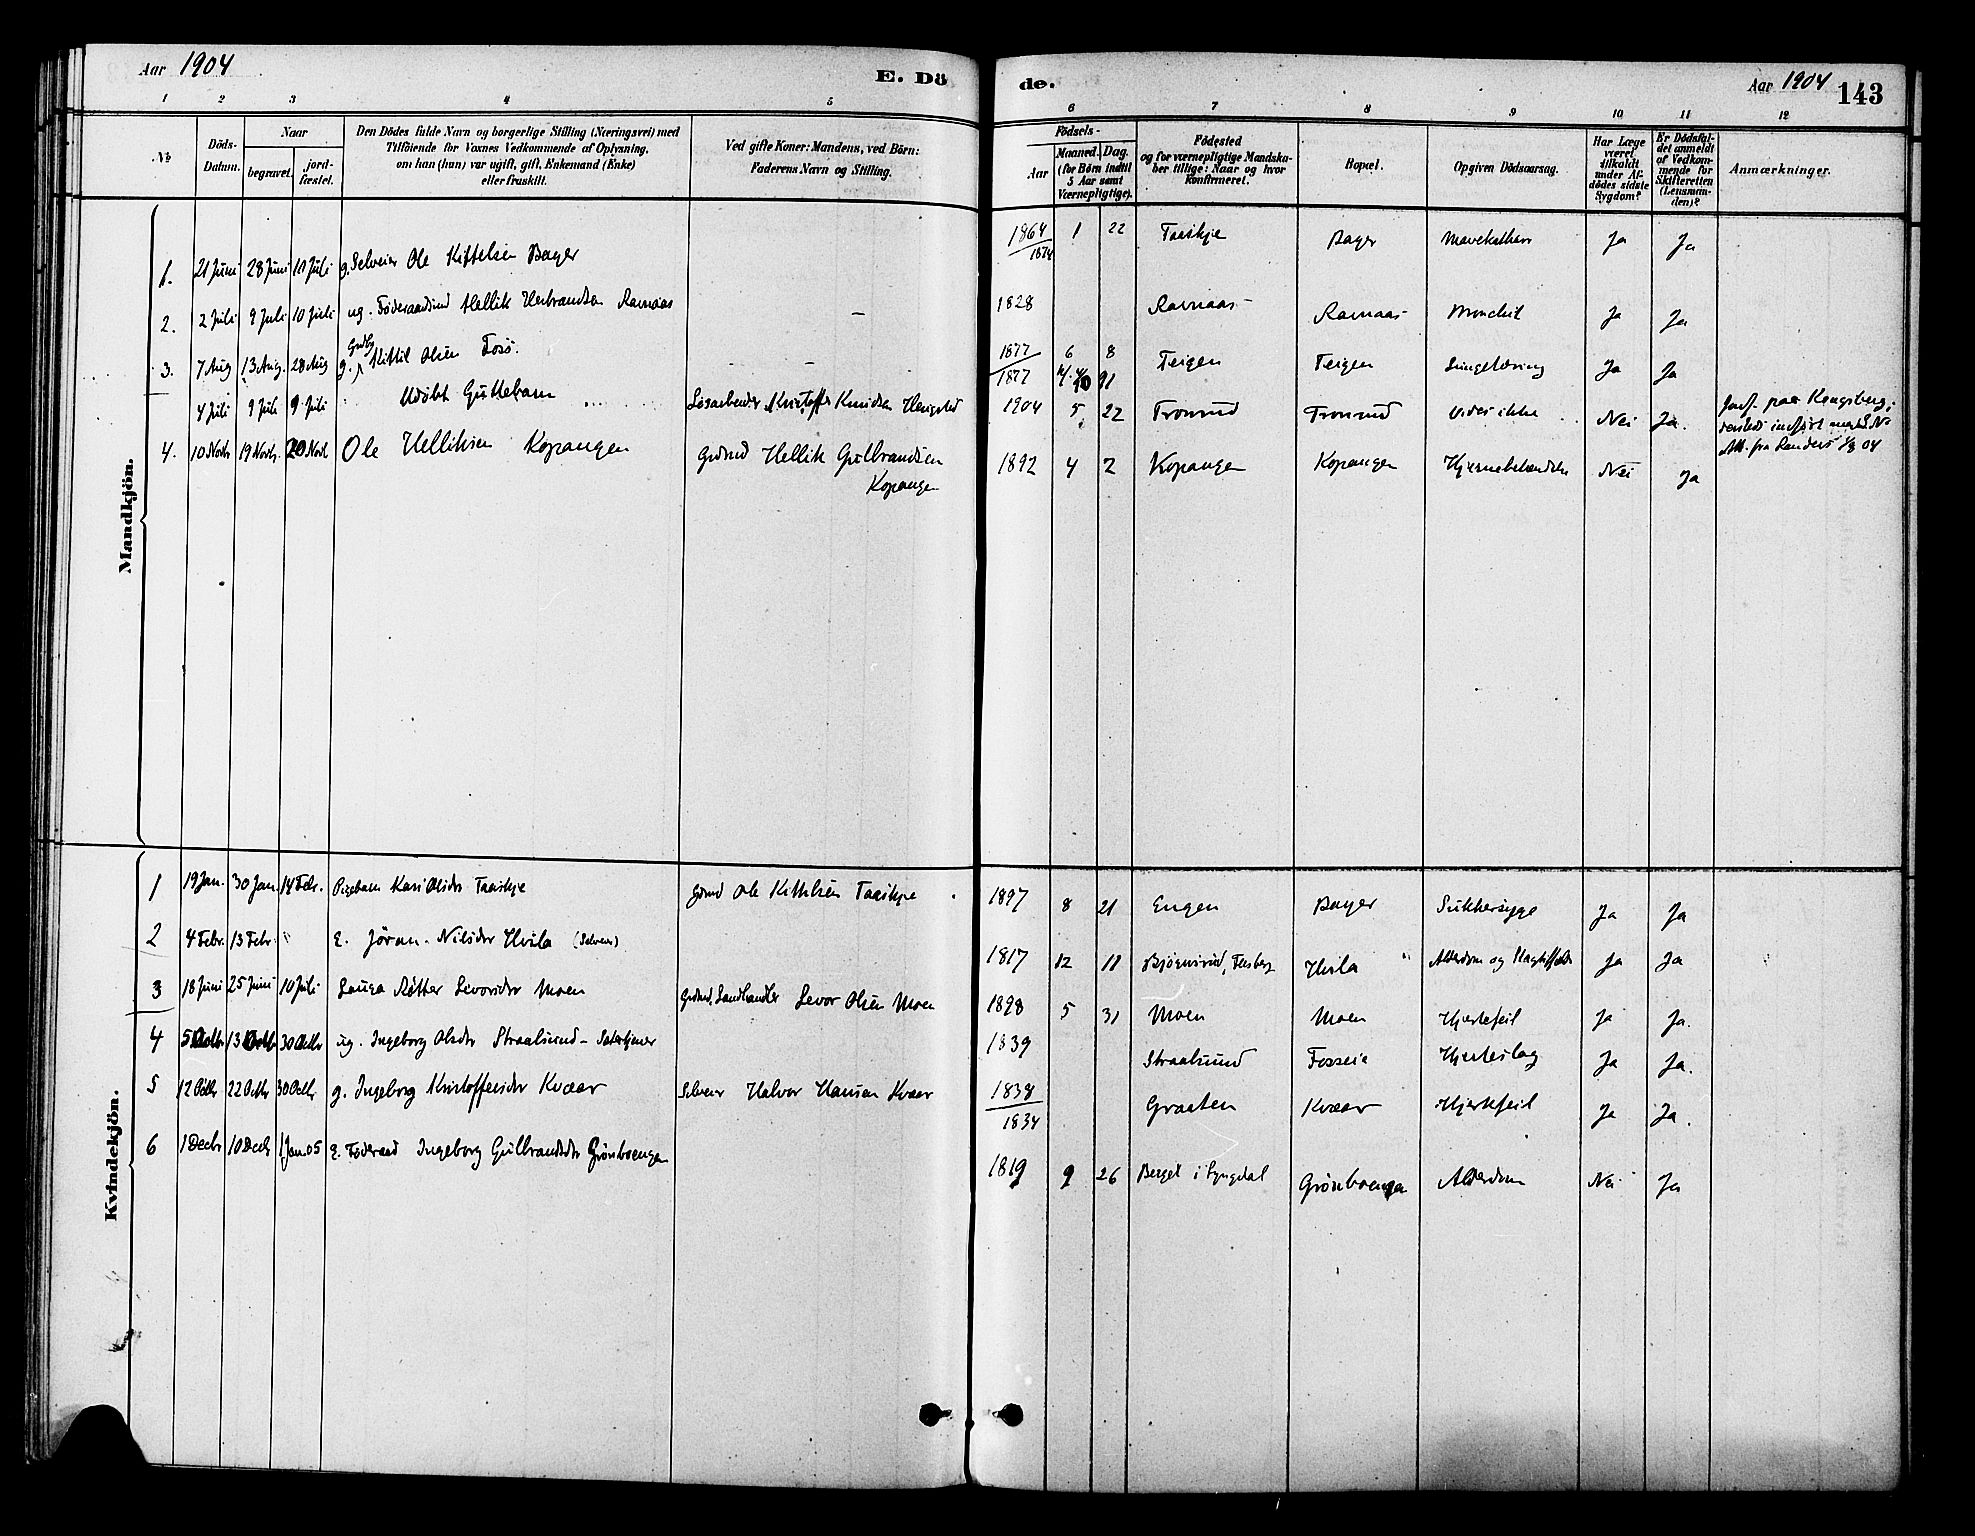 Aar 1904
E. Dö
de.
Aar 1904 143
1 2 3 4 5 6 7 8 9 10 11 12
No
Döds-
Datum.
Naar
begravet.
jord-
fæstet.
Den Dödes fulde Navn og borgerlige Stilling (Næringsvei) med
Tilföiende for Voxnes Vedkommende af Oplysning,
om han (hun) var ugift, gift, Enkemand (Enke)
eller fraskilt.
Ved gifte Koner: Mandens, ved Börn:
Faderens Navn og Stilling.
Födsels-
Aar
Maaned. Dag.
(for Børn indtil
5 Aar samt
Værnepligtige).
Födested
og for værnepligtige Mandska-
ber tillige: Naar og hvor
Konfirmeret.
Bopæl.
Opgiven Dödsaarsag.
Har Læge
været
tilkaldt
under Af-
dödes sidste
Sygdom?
Er Dödsfal-
det anmeldt
of Vedkom-
mende for
Skifteretten
(Lensman-
den)?
Anmærkninger.
Mandkjön.
1. 21 Juni 28 Juni 10 Juli g. Selveier Ole Kittelsen Bager 1864/1874 1 22 Taiskje Bager Ja Ja
2. 2 Juli 9 Juli 10 Juli ug. Föderaadsmd Hellik Herbrandsen Ramaas — 1828 Ramaas Ramaas Ja Ja
3. 7 Aug 13 Aug. 28 Aug g. Kittil Olsen Fosö. — — 1877/1877 6 8 Teigen Teigen Lungetæring Ja Ja
4 Juli 9 Juli 9 Juli Udöbt Guttebarn Løsarbeider Kristoffer Knudsen 1904 5 22 Tronrud Tronrud Vides ikke Nei Ja.
Jordf. paa Kongsberg,
indført
fra Sandsvær 04
4. 10 Novb 19 Novb. 20 Novb Ole Helliksen Kopangen Grdmd Hellik Gulbrandsen
Kopangen
1892 4 2 Kopangen Kopangen Nei Ja
Kvindekjön.
1 19 Jan. 30 Jan. 14 Feb. Pigebarn Kari Olsdtr Taaiskje Grdmd Ole Kittelsen Taaiskje 1897 8 21 Engen Bager Sukkersyge Ja Ja
2 4 Febr. 13 Febr. " E. Jöran Nilsdtr Hvila (Selveier) 1817 12 11 Hvila Alderdom og Slagtilfælde Ja Ja
3 18 Juni 25 Juni 10 Juli Levorsdtr Moen Grdmd, Landhandler Levor Olsen Moen 1898 5 31 Moen Moen Hjertefeil Ja Ja.
4 5 Octbr 13 Octbr 30 Octbr ug. Ingeborg Olsdtr Straalsund 1839 Straalsund Fosseie Hjerteslag Ja Ja.
5 12 Octbr 22 Octbr 30 Octbr g. Ingeborg Kristoffersdtr Kvaar Selveier Halvor Hansen Kvaar 1838/1834 Graaten Kvaar Hjertefeil Ja Ja.
6 1 Decb 10 Decb 1 Jan. 05 E. Föderaad Ingeborg Gulbrandsdtr Grönboengen 1819 9 26 Berget i Lyngdal Grönboengen Alderdom Nei Ja